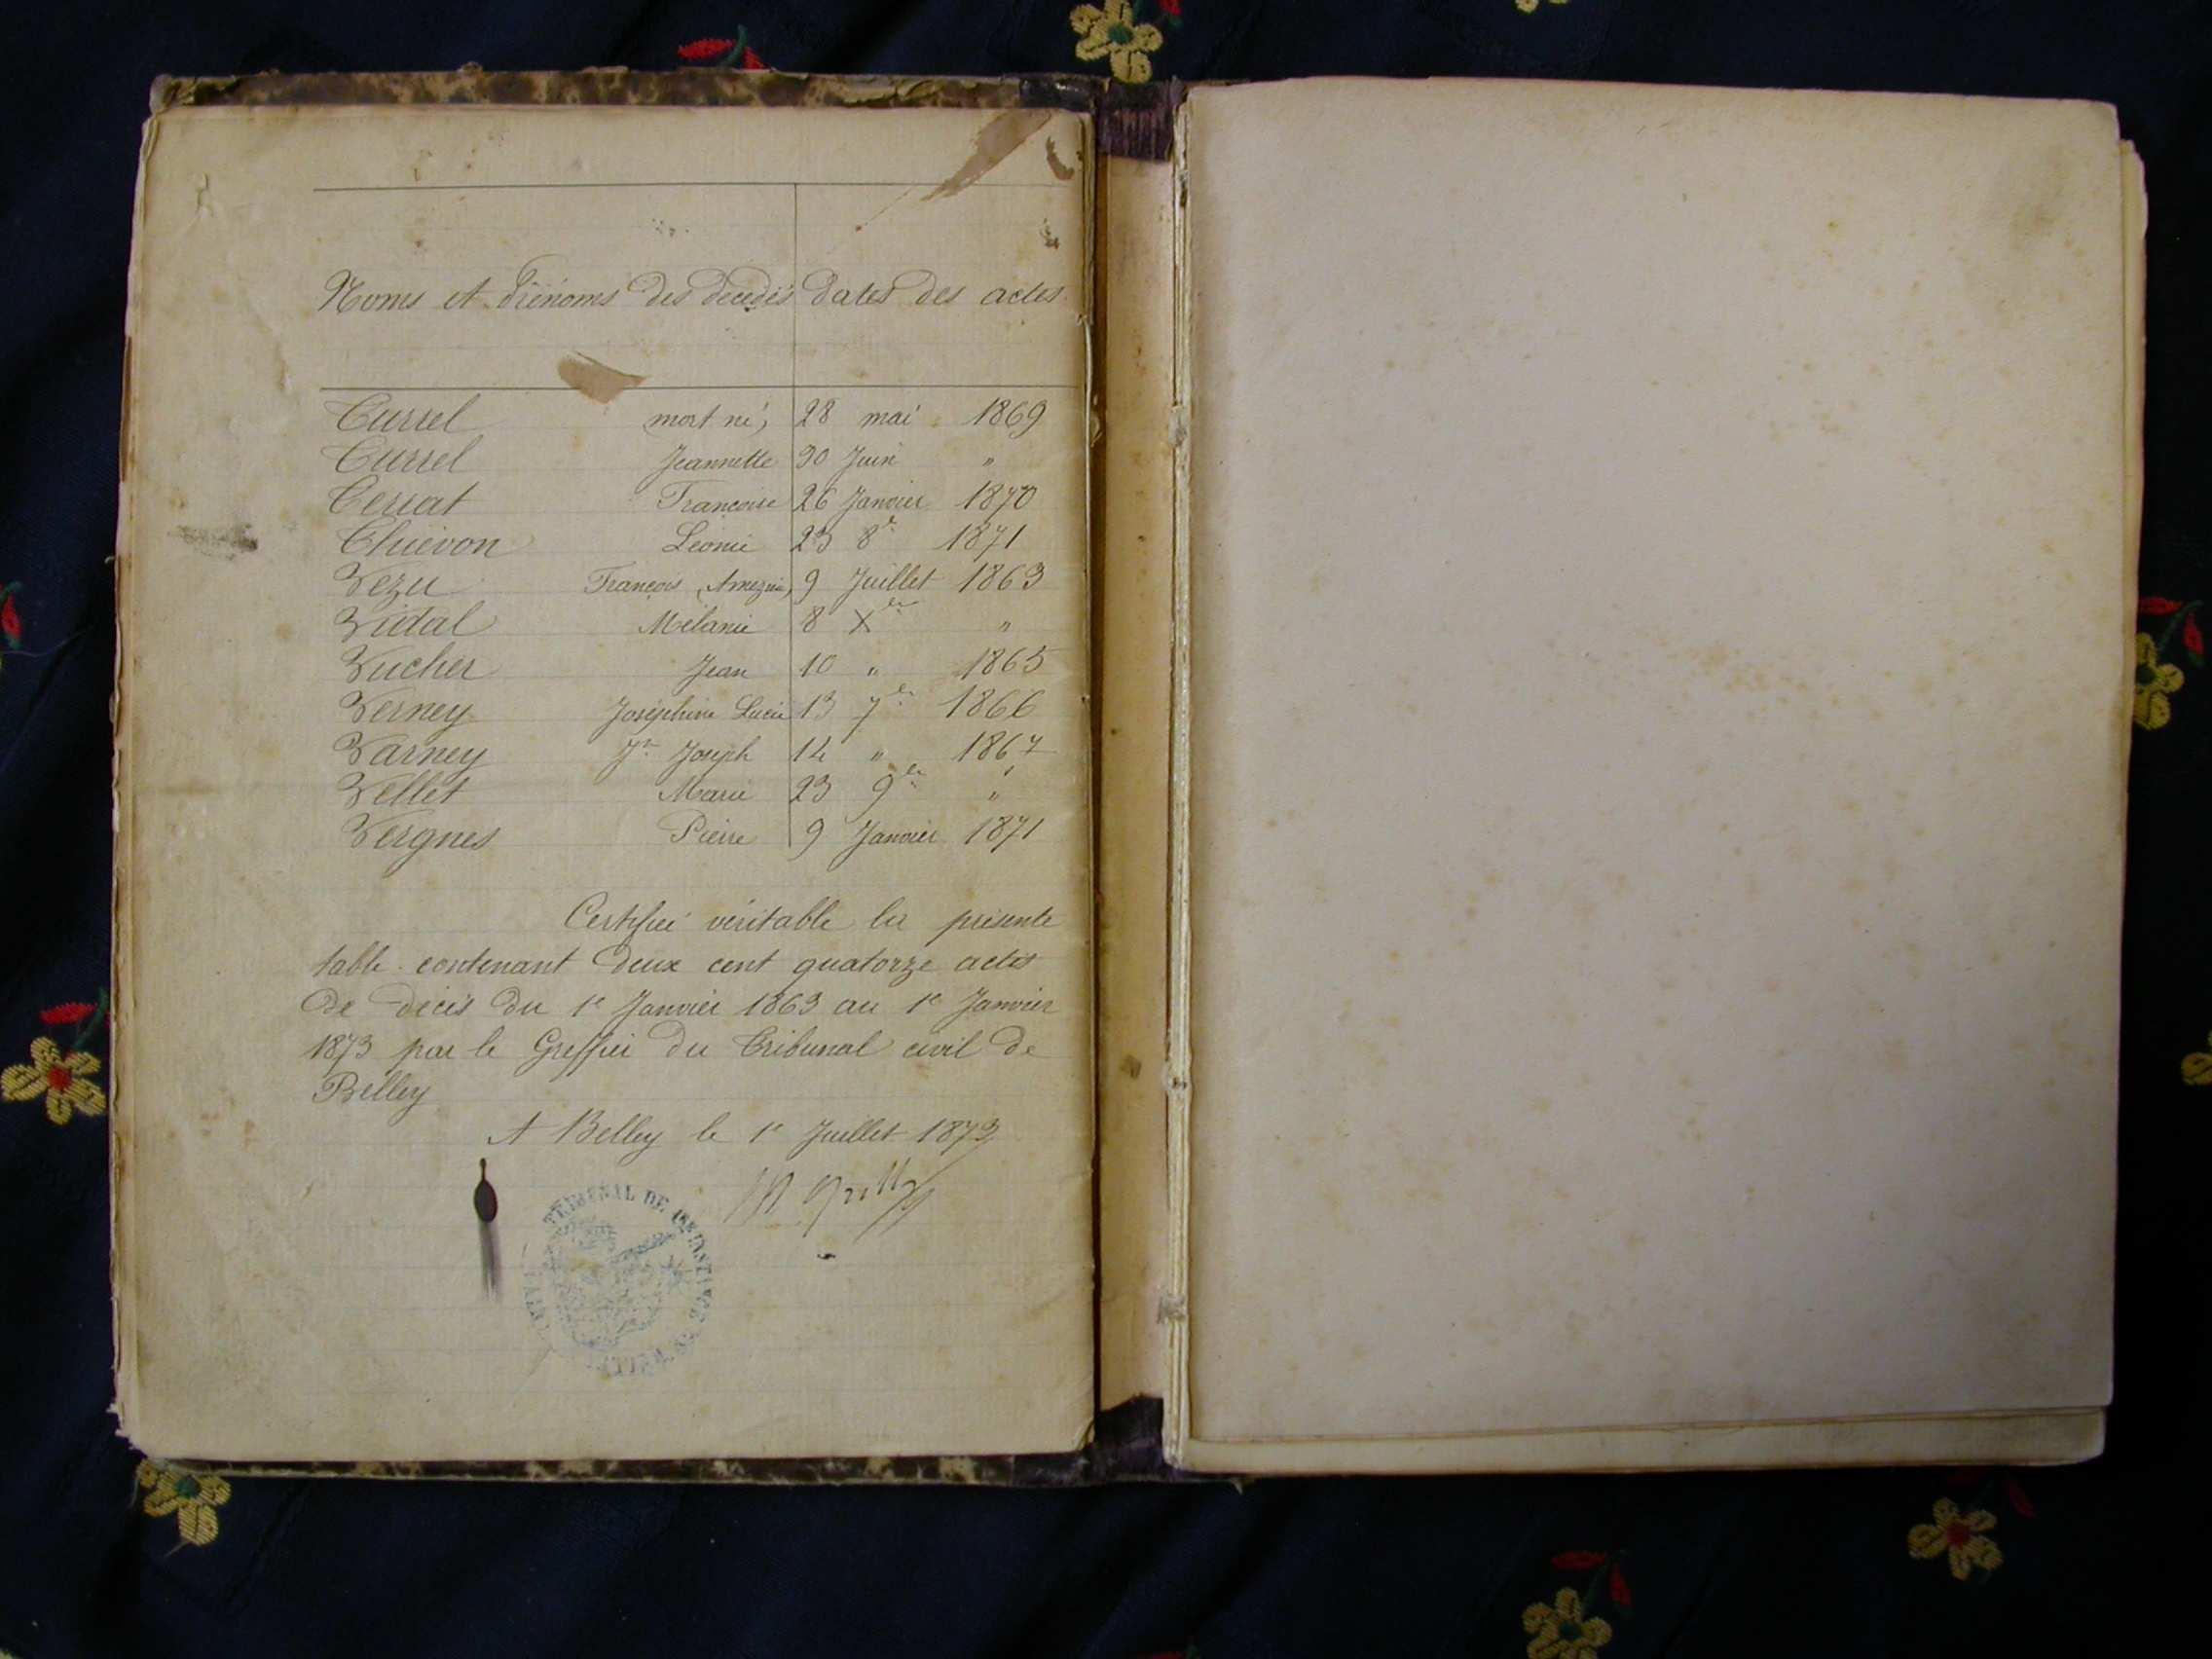 Noms et Prénoms des décédés dates des actes
Currel mort né, 28 mai 1869
Currel Jeannette 30 Juin "
Cerrat Francoise 26 Janvier 1870
Léonie 23 8re 1871
Vezu François 9 Juillet 1863
Vidal Mélanie 8 Xbre "
Vucher Jean 10 " 1865
Verney Joséphine Lucie 13 7bre 1866
Varney Jn Joseph 14 " 1867
Vellet Marie 23 9bre "
Vergnes Pierre 9 Janvier 1871
Certifié véritable la présente
table contenant deux cent quatorze actes
de décès du 1e Janvier 1863 au 1e Janvier
1873 par le Greffier du Tribunal civil de
Belley
A Belley le 1e Juillet 1873
TRIBUNAL DE 1ERE INSTANCE